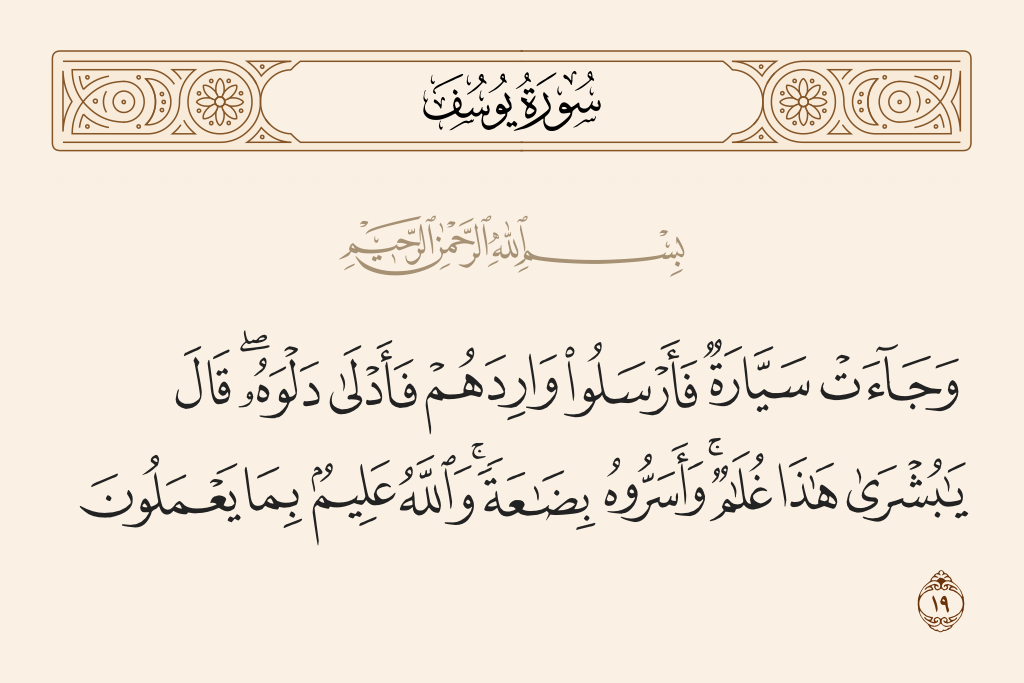 سُورَةُ يُوسُفَ
بِسْمِ ٱللَّهِ ٱلرَّحْمَٰنِ ٱلرَّحِيمِ
وَجَآءَتْ سَيَّارَةٌ فَأَرْسَلُوا۟ وَارِدَهُمْ فَأَدْلَىٰ دَلْوَهُۥ ۖ قَالَ
يَـٰبُشْرَىٰ هَـٰذَا غُلَـٰمٌ ۚ وَأَسَرُّوهُ بِضَـٰعَةً ۚ وَٱللَّهُ عَلِيمٌۢ بِمَا يَعْمَلُونَ
١٩